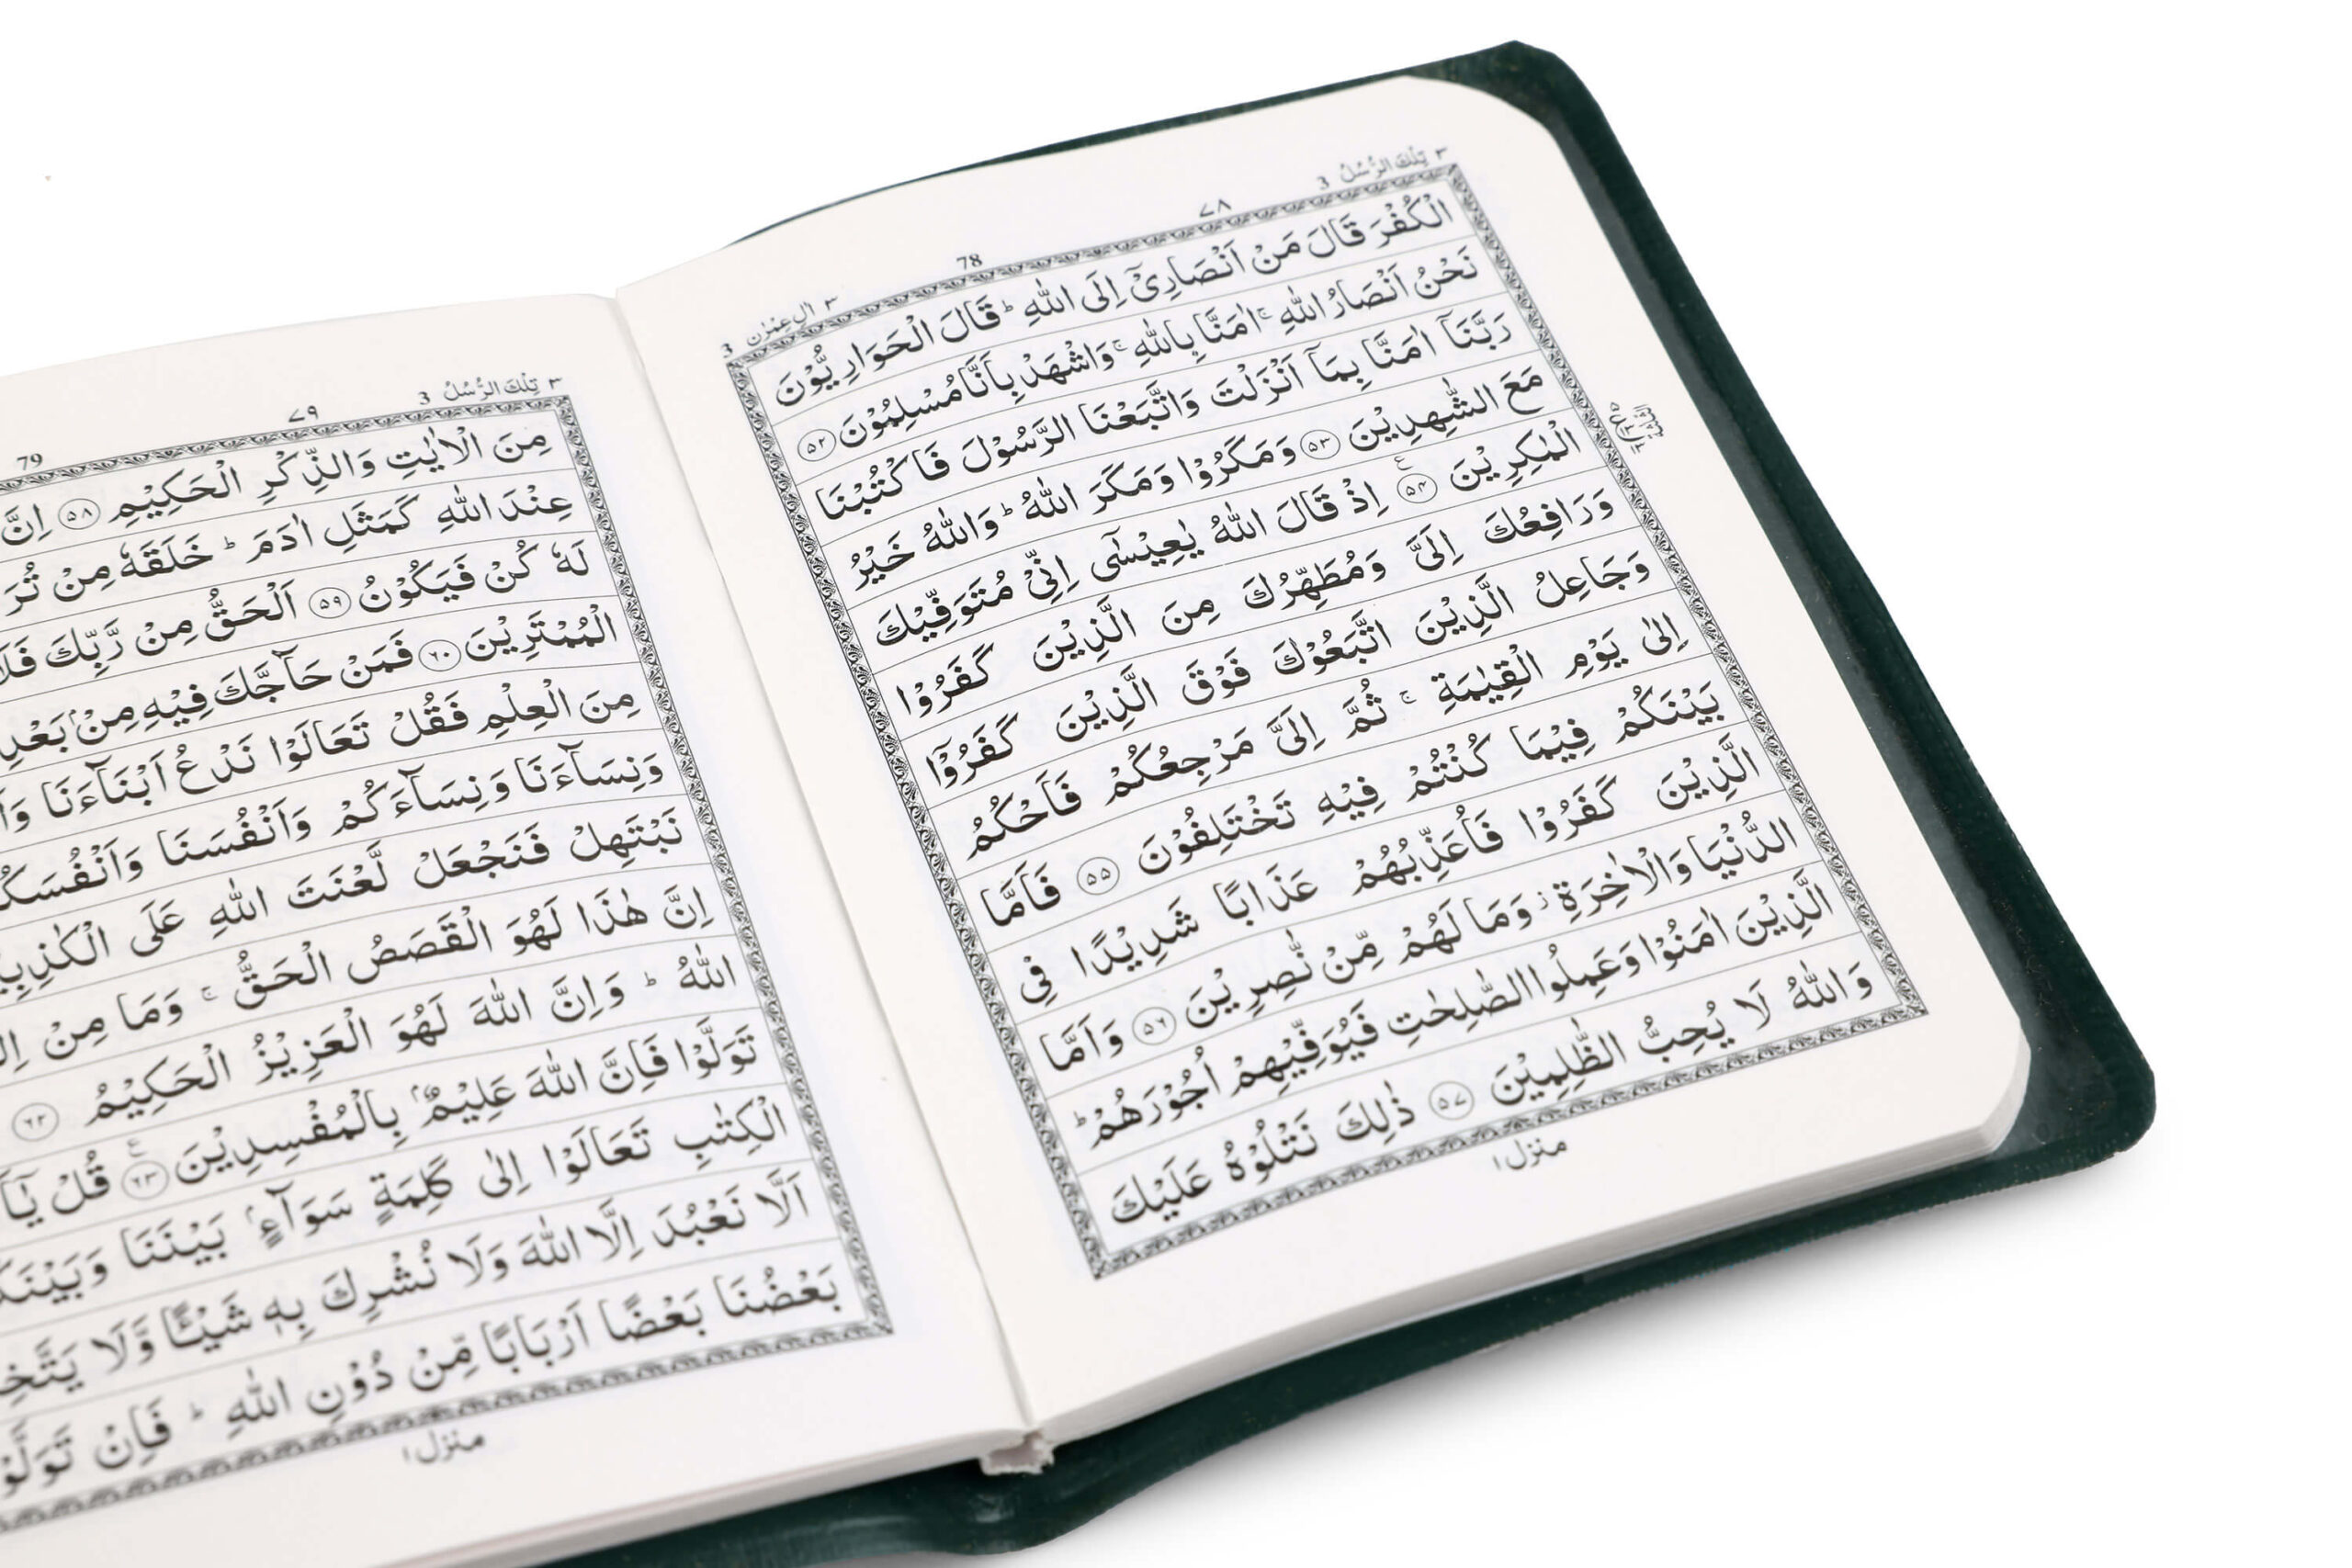 ٣ تِلْكَ الرُّسُلُ 3
٧٨
78
٣ اٰلِ عِمْرٰن 3
الْكُفْرَ قَالَ مَنْ اَنْصَارِىْٓ اِلَى اللّٰهِ ؕ قَالَ الْحَوَارِيُّوْنَ
نَحْنُ اَنْصَارُ اللّٰهِ ۚ اٰمَنَّا بِاللّٰهِ ۚ وَاشْهَدْ بِاَنَّا مُسْلِمُوْنَ ۵۲
رَبَّنَآ اٰمَنَّا بِمَآ اَنْزَلْتَ وَاتَّبَعْنَا الرَّسُوْلَ فَاكْتُبْنَا
مَعَ الشّٰهِدِيْنَ ۵۳ وَمَكَرُوْا وَمَكَرَ اللّٰهُ ؕ وَاللّٰهُ خَيْرُ
الْمٰكِرِيْنَ ۵۴ ع اِذْ قَالَ اللّٰهُ يٰعِيْسٰٓى اِنِّىْ مُتَوَفِّيْكَ
وَرَافِعُكَ اِلَىَّ وَمُطَهِّرُكَ مِنَ الَّذِيْنَ كَفَرُوْا
وَجَاعِلُ الَّذِيْنَ اتَّبَعُوْكَ فَوْقَ الَّذِيْنَ كَفَرُوْٓا
اِلٰى يَوْمِ الْقِيٰمَةِ ۚ ثُمَّ اِلَىَّ مَرْجِعُكُمْ فَاَحْكُمُ
بَيْنَكُمْ فِيْمَا كُنْتُمْ فِيْهِ تَخْتَلِفُوْنَ ۵۵ فَاَمَّا
الَّذِيْنَ كَفَرُوْا فَاُعَذِّبُهُمْ عَذَابًا شَدِيْدًا فِى
الدُّنْيَا وَالْاٰخِرَةِ ز وَمَا لَهُمْ مِّنْ نّٰصِرِيْنَ ۵۶ وَاَمَّا
الَّذِيْنَ اٰمَنُوْا وَعَمِلُوا الصّٰلِحٰتِ فَيُوَفِّيْهِمْ اُجُوْرَهُمْ ؕ
وَاللّٰهُ لَا يُحِبُّ الظّٰلِمِيْنَ ۵۷ ذٰلِكَ نَتْلُوْهُ عَلَيْكَ
منزل ١
٣ تِلْكَ الرُّسُلُ 3
٧٩
79
مِنَ الْاٰيٰتِ وَالذِّكْرِ الْحَكِيْمِ ۵۸ اِنَّ
عِنْدَ اللّٰهِ كَمَثَلِ اٰدَمَ ؕ خَلَقَهٗ مِنْ
لَهٗ كُنْ فَيَكُوْنُ ۵۹ اَلْحَقُّ مِنْ رَّبِّكَ
الْمُمْتَرِيْنَ ۶۰ فَمَنْ حَآجَّكَ فِيْهِ مِنْۢ بَعْدِ
مِنَ الْعِلْمِ فَقُلْ تَعَالَوْا نَدْعُ اَبْنَآءَنَا
وَنِسَآءَنَا وَنِسَآءَكُمْ وَاَنْفُسَنَا
نَبْتَهِلْ فَنَجْعَلْ لَّعْنَتَ اللّٰهِ عَلَى
اِنَّ هٰذَا لَهُوَ الْقَصَصُ الْحَقُّ ۚ وَمَا مِنْ
اللّٰهُ ؕ وَاِنَّ اللّٰهَ لَهُوَ الْعَزِيْزُ الْحَكِيْمُ ۶۲
تَوَلَّوْا فَاِنَّ اللّٰهَ عَلِيْمٌۢ بِالْمُفْسِدِيْنَ ۶۳ ع قُلْ
الْكِتٰبِ تَعَالَوْا اِلٰى كَلِمَةٍ سَوَآءٍۢ بَيْنَنَا
اَلَّا نَعْبُدَ اِلَّا اللّٰهَ وَلَا نُشْرِكَ بِهٖ شَيْـًٔا وَّلَا
بَعْضُنَا بَعْضًا اَرْبَابًا مِّنْ دُوْنِ اللّٰهِ ؕ فَاِنْ
منزل ١